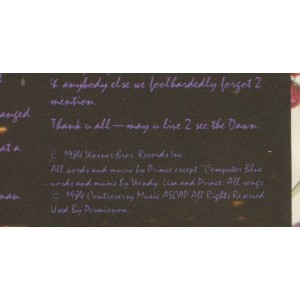 & anybody else we foolhardedly forgot 2
mention.
anged
Thank u all — may u live 2 see the Dawn.
at a
© 1984 Warner Bros. Records Inc.
All words and music by Prince except "Computer Blue
words and music by Wendy, Lisa and Prince. All songs
man
© 1984 Controversy Music ASCAP All Rights Reserved
Used By Permission.